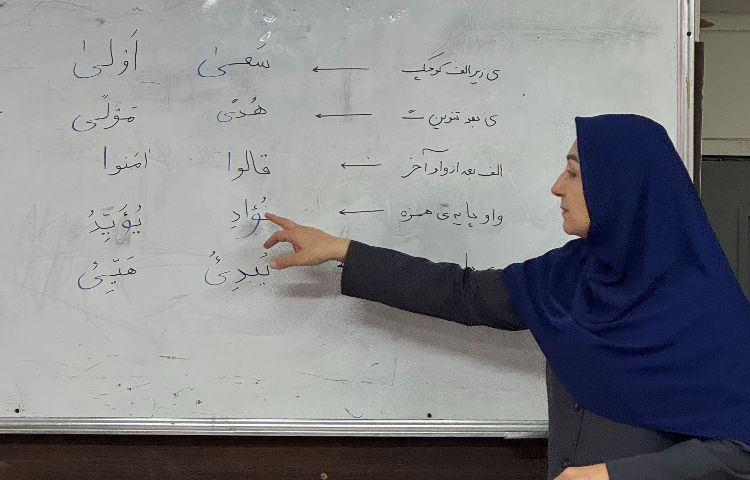 ی زیر الف کوچک ← سَعىٰ اَوْلىٰ
ی بعد تنوین ـً ← هُدًی مَوْلًی
الف بعد از واو آخر ← قالوا امَنوا
واو پایه ی همزه ← فُؤادِ یُؤَیِّدُ
یُبدِئُ هَیِّئ